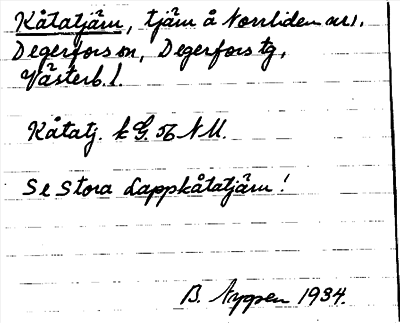 Kåtatjärn, tjärn å Norrliden nr 1,
Degerfors sn, Degerfors tg,
Västerb. l.
Kåtatj. k G. 56 N U.
Se Stora Lappkåtatjärn!
B. 1934.